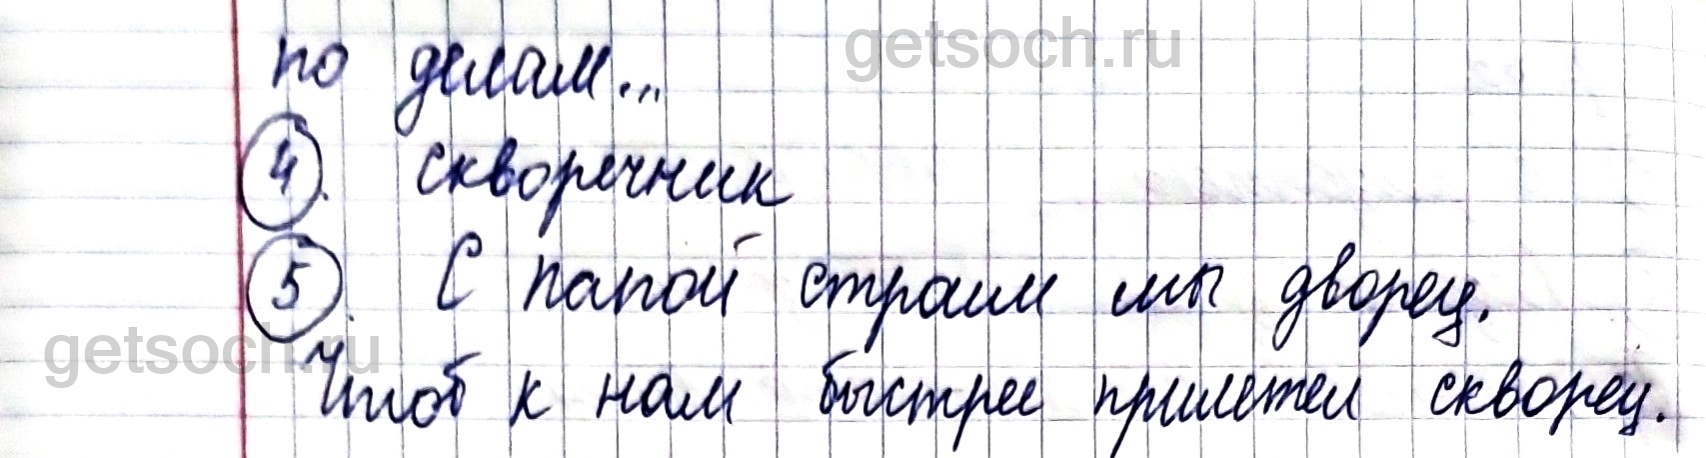 getsoch.ru
по делам...
4. скворечник
5. С папой строим мы дворец.
getsoch.ru
Чтоб к нам быстрее прилетел скворец.